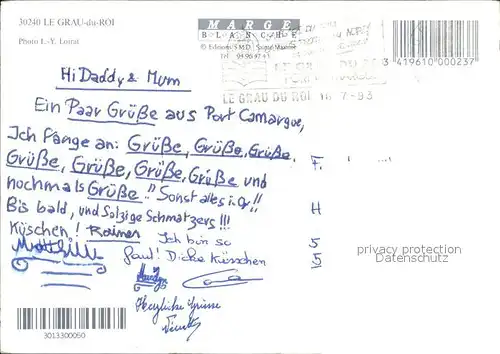 30240 LE GRAU-du-ROI
Photo L.-Y. Loirat
MARGE
BLANCHE
© Editions S.M.D.
Tel.
3 419610 000237
LE GRAU DU ROI
LE GRAU DU ROI 16 7-93
Hi Daddy & Mum
Ein Paar Grüße aus Port Camargue,
Ich fange an: Grüße, Grüße, Grüße,
Grüße, Grüße, Grüße, Grüße und
nochmals Grüße!! Sonst alles i.O!!
Bis bald, und Salzige Schmatzers!!!
Küschen! Rainer
Ich bin so
faul! Dicke Küschen
Herzliche Grüsse
F.
H
5
5
privacy protection
Datenschutz
3013300050